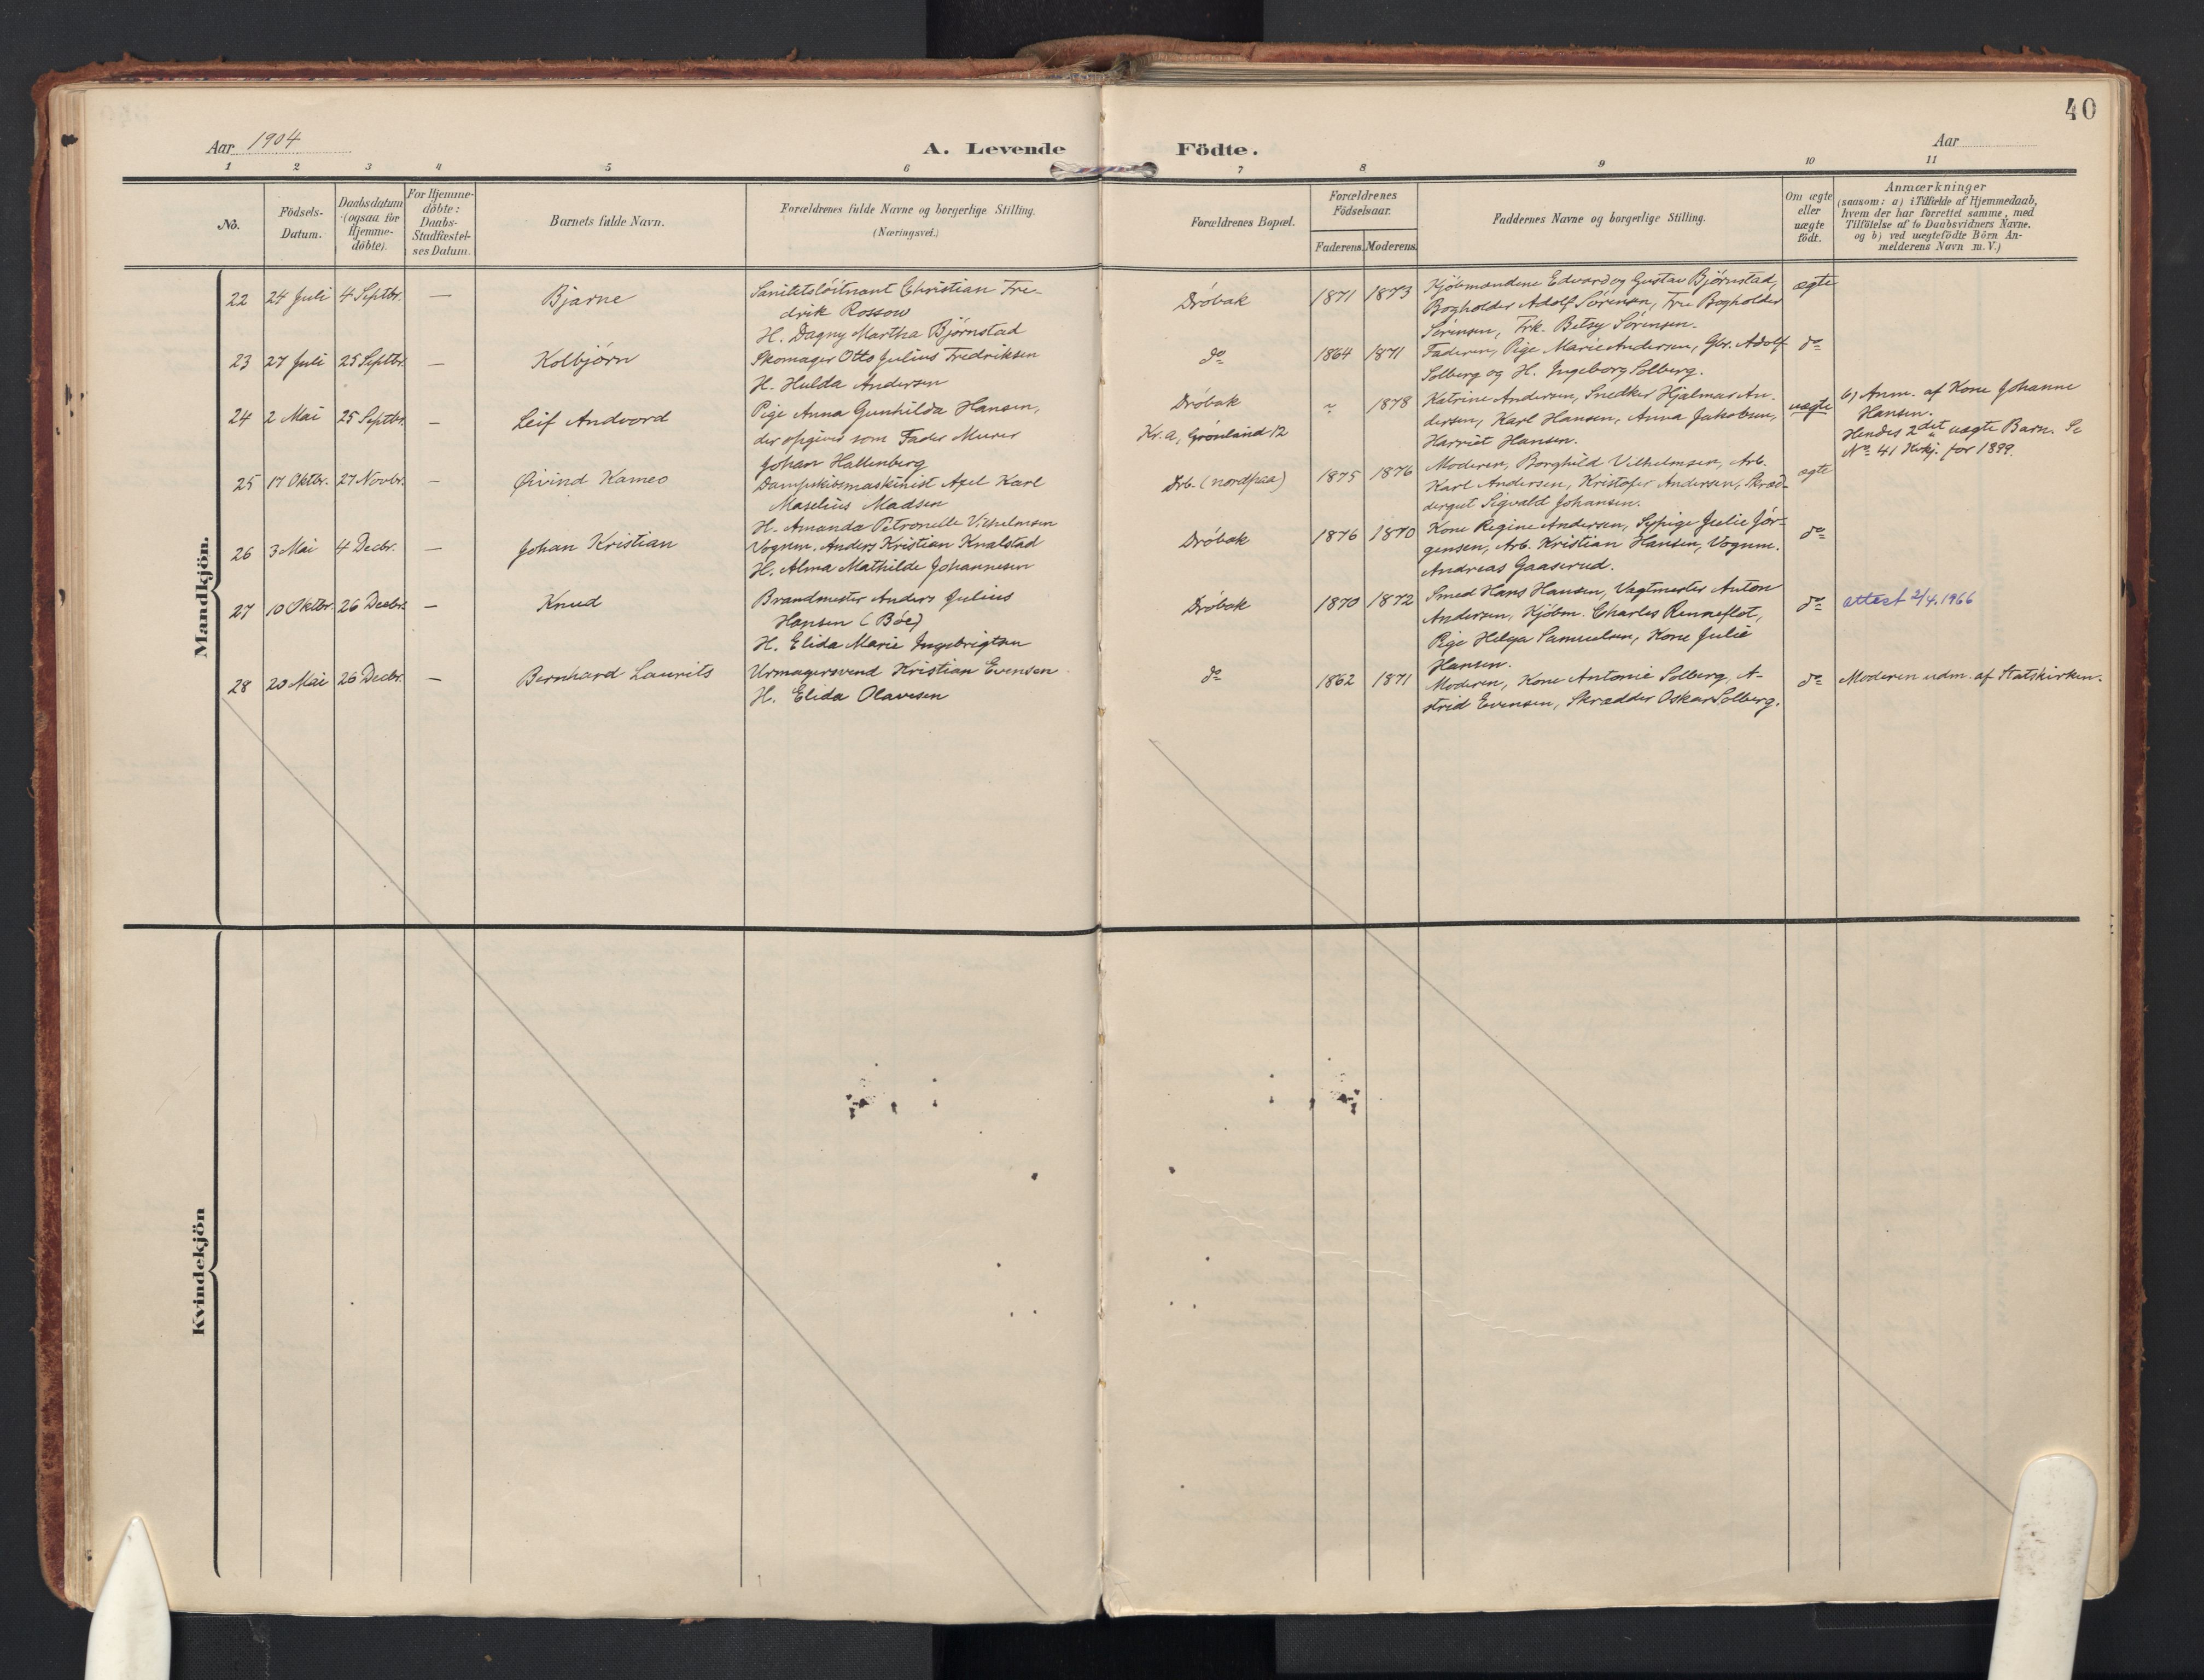 40
Aar 1904
A. Levende Födte.
Aar
1 2 3 4 5 6 7 8 9 10 11
No.
Födsels-
Datum.
Daabsdatum
(ogsaa for
Hjemme-
döbte).
For Hjemme-
döbte:
Daabs-
Stadfæstel-
ses Datum.
Barnets fulde Navn.
Forældrenes fulde Navne og borgerlige Stilling.
(Næringsvei.)
Forældrenes Bopæl.
Forældrenes
Födselsaar.
Faderens. Moderens.
Faddernes Navne og borgerlige Stilling.
Om ægte
eller
uægte
födt.
Anmærkninger
(saasom: a) i Tilfælde af Hjemmedaab,
hvem der har forrettet samme, med
Tilföielse af to Daabsvidners Navne,
og b) ved uægtefödte Börn An-
melderens Navn m. V.)
Mandkjön.
22 24 Juli 4 Septbr. — Bjarne
Sanitetslöitnant Christian Fre-
drik Rossow
H. Dagny Martha Björnstad
Dröbak 1871 1873
Kjöbmændene Edvard og Gustav Björnstad,
Bogholder Adolf Sörensen, Fru Bogholder
Sörensen, Frk. Betsy Sörensen.
ægte
23 27 Juli 25 Septbr. — Kolbjörn
Skomager Otto Julius Fredriksen
H. Hulda Andersen
do 1864 1871
Faderen, Pige Marie Andersen, Gbr. Adolf
Solberg og H. Ingeborg Solberg.
do
24 2 Mai 25 Septbr. — Leif Andvord
Pige Anna Gunhilda Hansen,
der opgiver som Fader Murer
Johan Hallenberg
Dröbak
Kr.a, Grönland 12
~ 1878
Katrine Andersen, Snedker Hjalmar An-
dersen, Karl Hansen, Anna Jakobsen,
Harriet Hansen.
uægte
b) Anm. af Kone Johanne
Hansen.
Hendes 2det uægte Barn. Se
No 41 Kirkj. for 1899.
25 17 Oktbr. 27 Novbr. — Öivind Kameo
Dampskibsmaskinist Axel Karl
Maselius Madsen
H. Amanda Petronelle Vilhelmsen
Drb. (nordpaa) 1875 1876
Moderen, Borghild Vilhelmsen, Arb.
Karl Andersen, Kristofer Andersen, Skræd-
dergut Sigvald Johansen.
ægte
26 3 Mai 4 Decbr. — Johan Kristian
Vognm. Anders Kristian Knalstad
H. Alma Mathilde Johannesen
Dröbak 1876 1870
Kone Regine Andersen, Sypige Julie Jör-
gensen, Arb. Kristian Hansen, Vognm.
Andreas Gaaserud.
do
27 10 Oktbr. 26 Decbr. — Knud
Brandmester Anders Julius
Hansen (Böe)
H. Elida Marie Ingebrigtsen
Dröbak 1870 1872
Smed Hans Hansen, Vagtmester Anton
Andersen, Kjöbm. Charles Renneflot,
Pige Helga Samuelsen, Kone Julie
Hansen.
do attest 2/4. 1966
28 20 Mai 26 Decbr. — Bernhard Laurits
Urmagersvend Kristian Evensen
H. Elida Olavesen
do 1862 1871
Moderen, Kone Antonie Solberg, A-
strid Evensen, Skrædder Oskar Solberg.
do Moderen udm. af Statskirken.
Kvindekjön